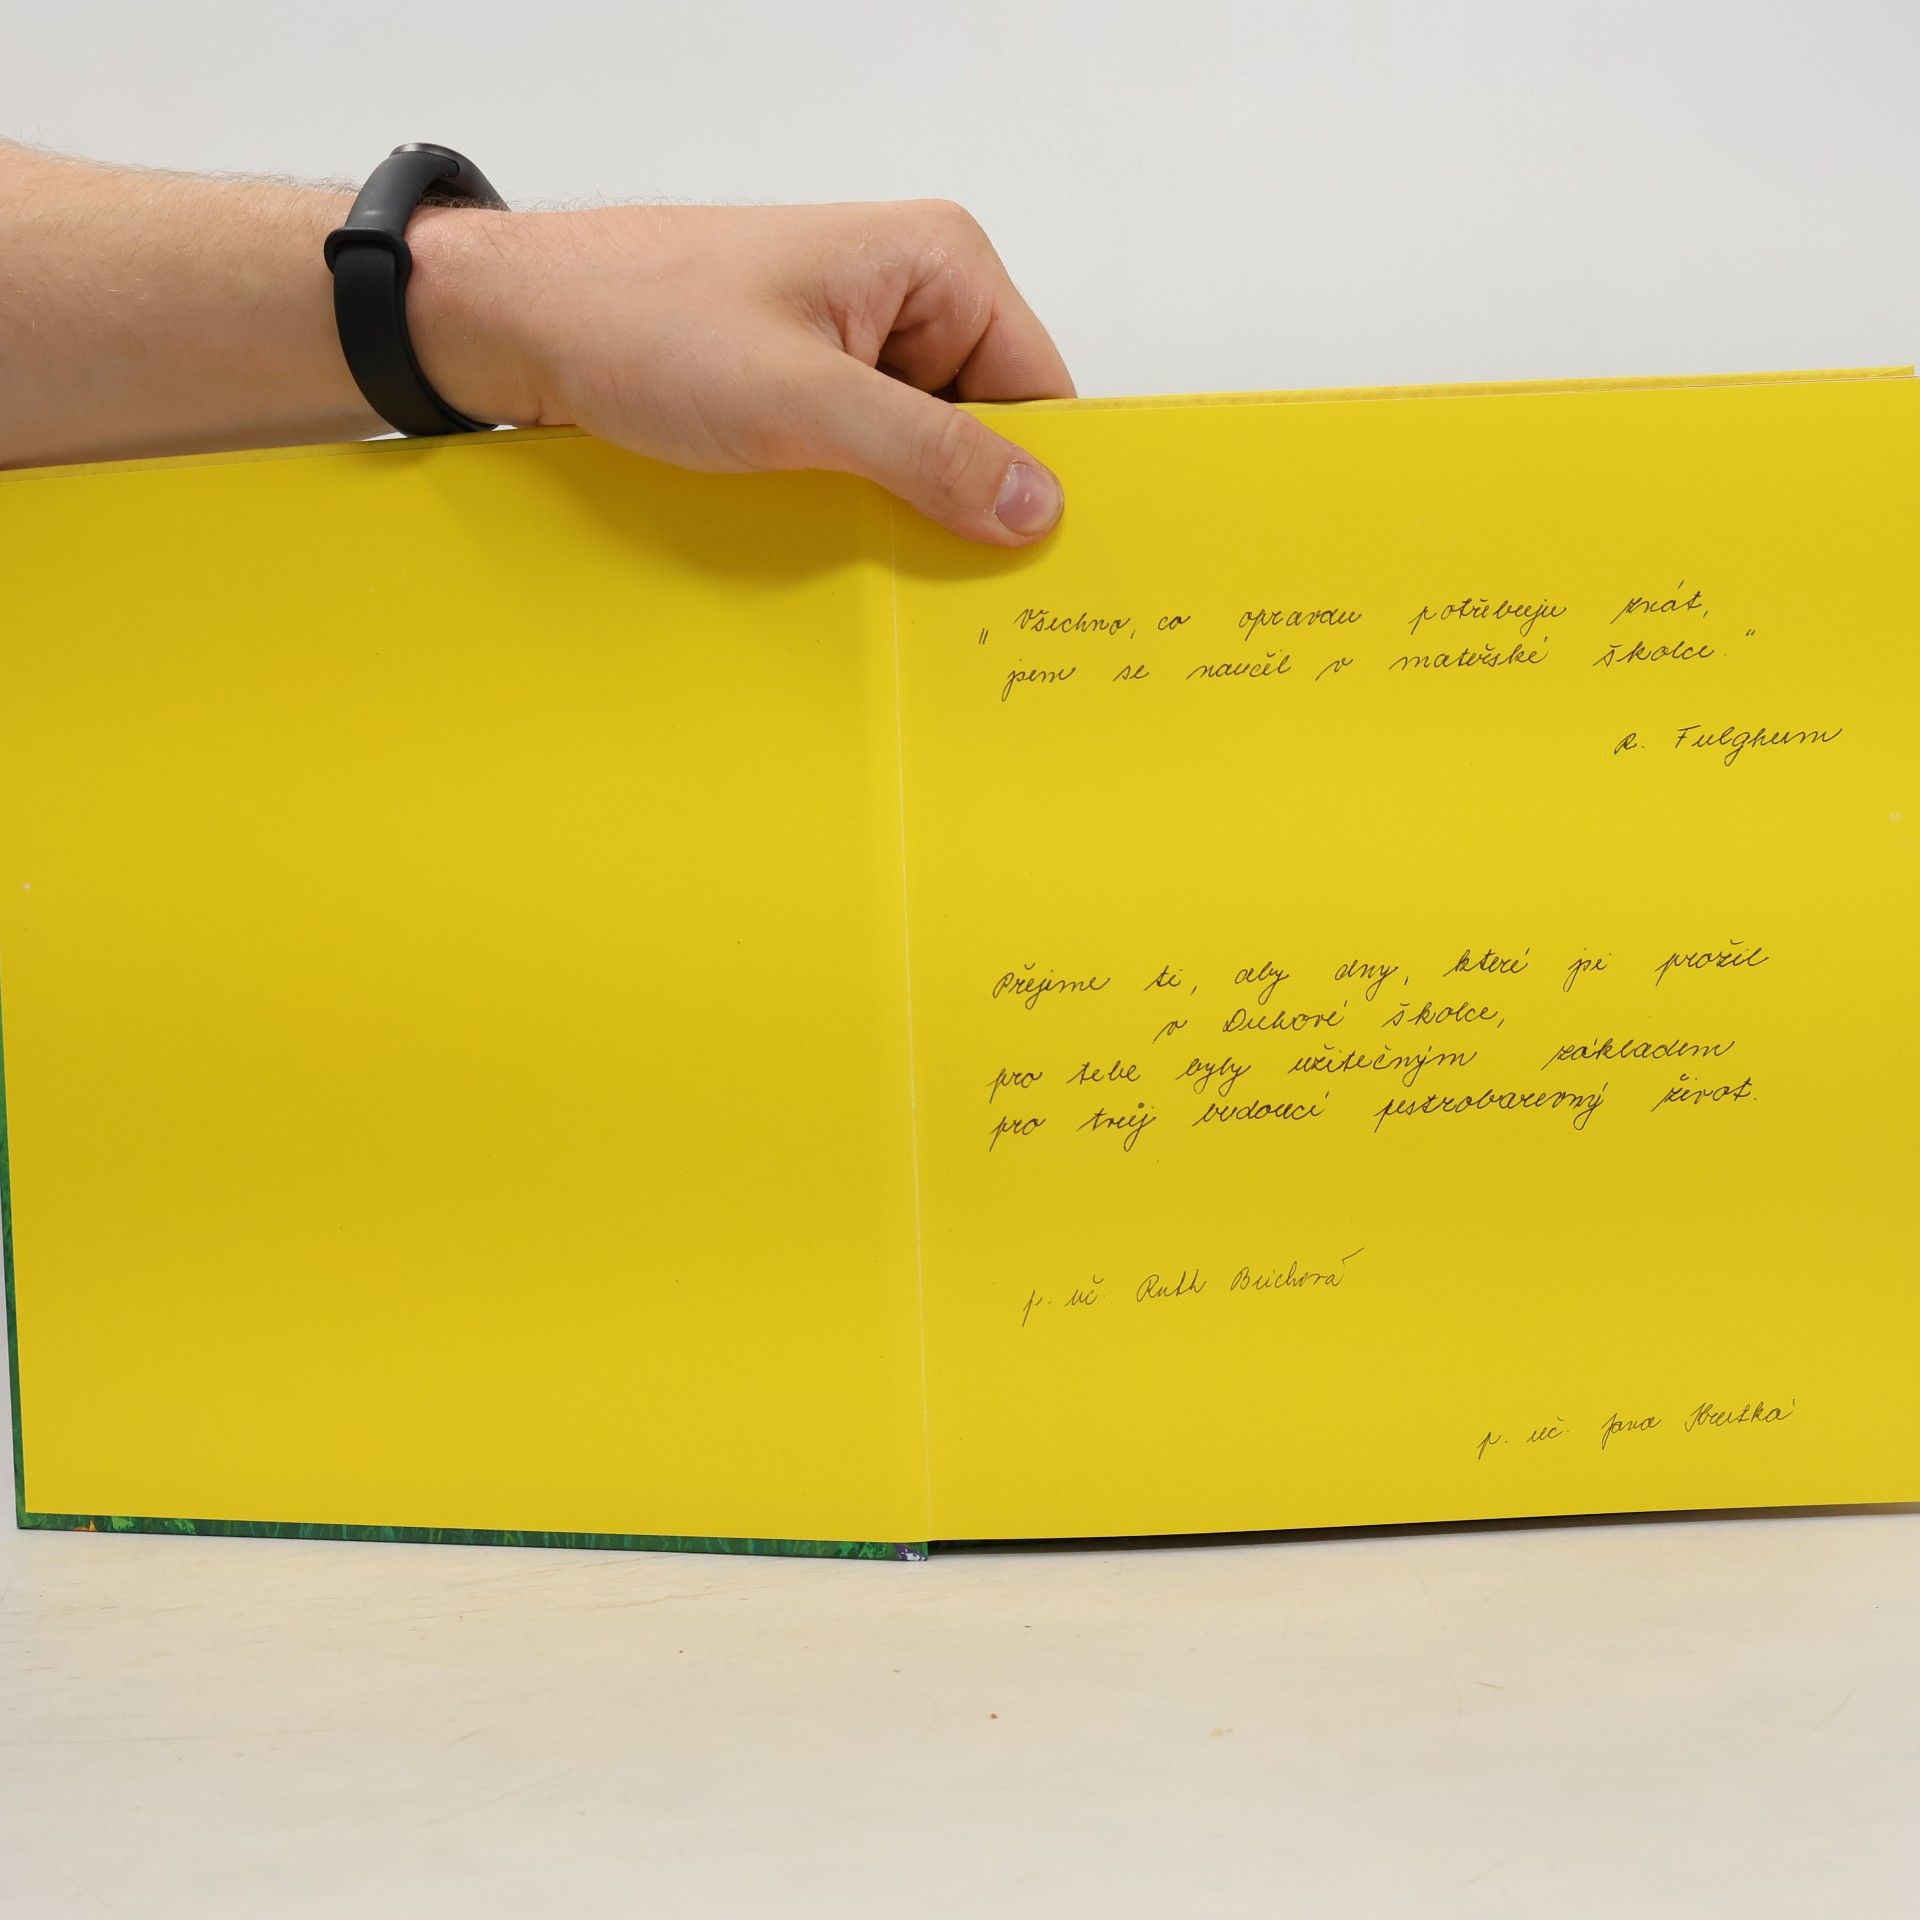 „Všechno, co opravdu potřebuju znát,
jsem se naučil v mateřské školce."
R. Fulghum
Přejeme ti, aby dny, které jsi prožil
v Duhové školce,
pro tebe byly užitečným základem
pro tvůj budoucí pestrobarevný život.
p. uč. Ruth
p. uč. Jana